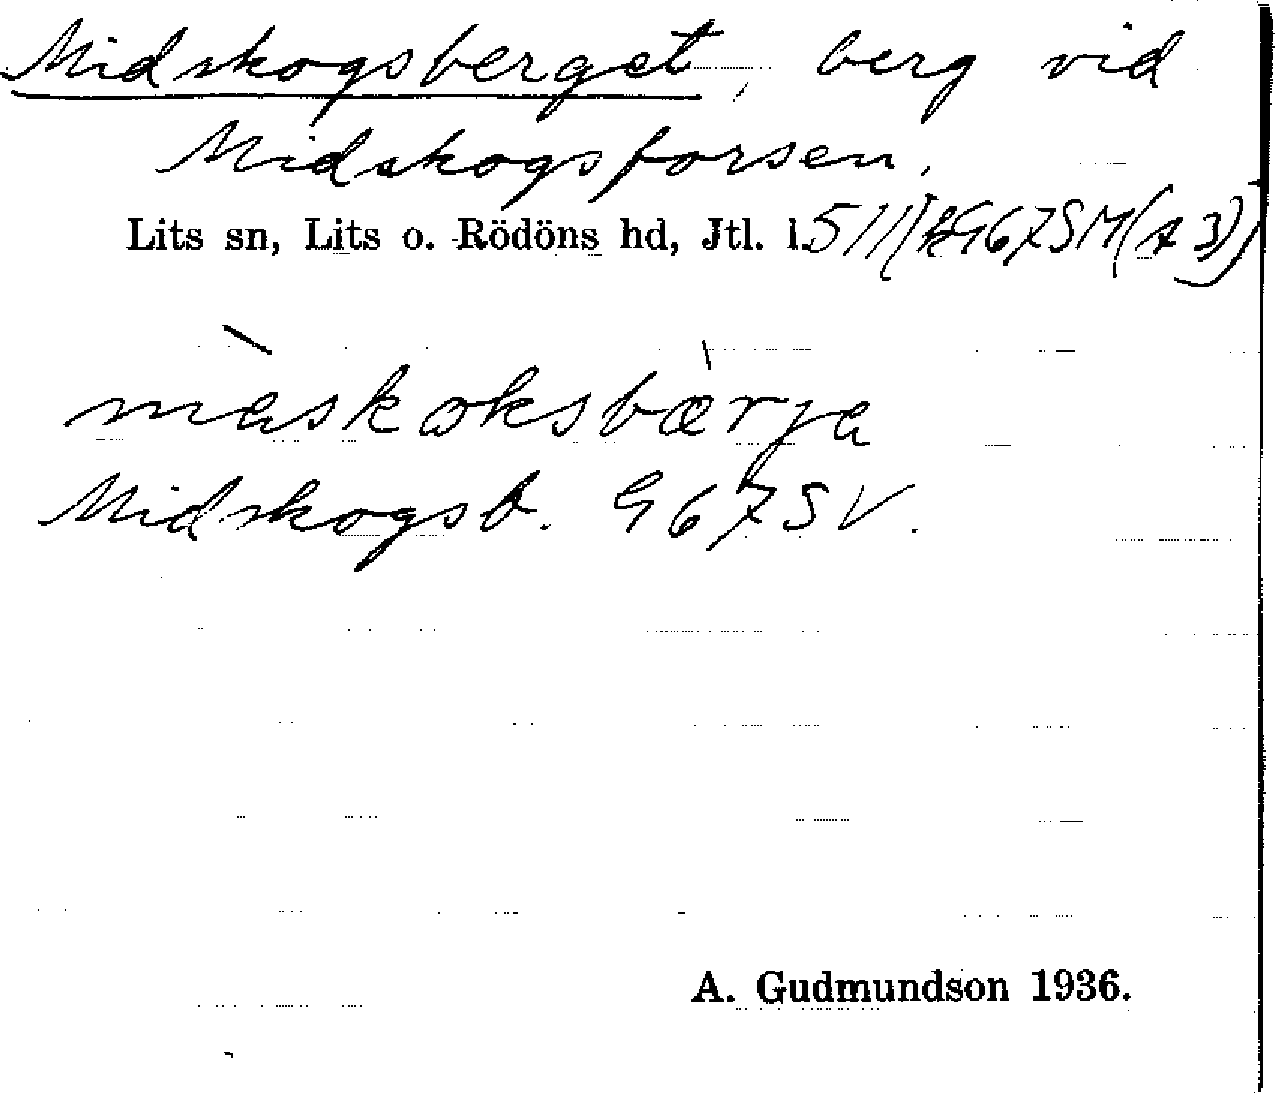 Midskogsberget, berg vid
Midskogsforsen.
Lits sn, Lits o. Rödöns hd, Jtl. l. 511 G67SM(A3)
màskoksbæ̀rja
Midskogsb. G67SV.
A. Gudmundson 1936.